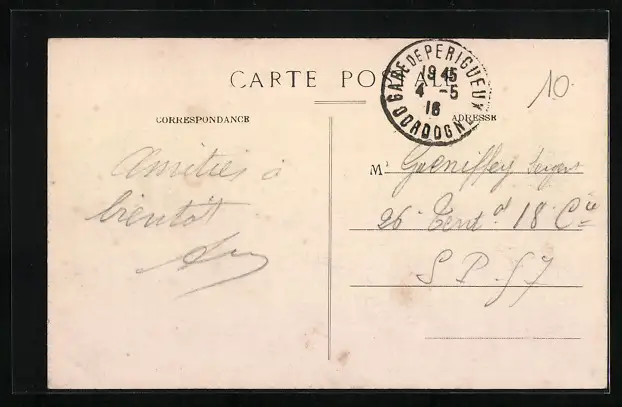 CARTE POSTALE
GARE DE PERIGUEUX
19 45
4 -5
16
DORDOGNE
10
CORRESPONDANCE
ADRESSE
Amitiés à
bientôt
M Gueniffey
26 Territ al 18 Cie
S P. 57